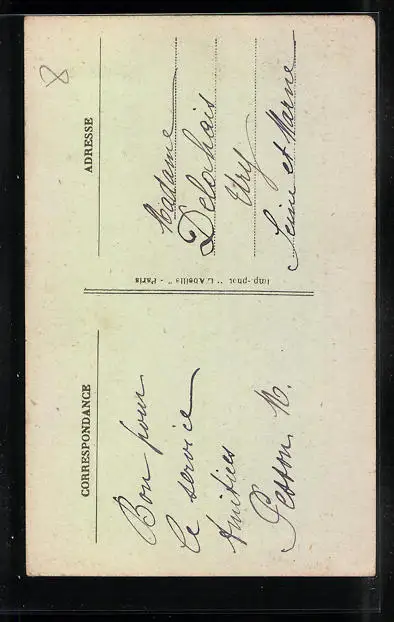 CORRESPONDANCE
Bon pour
le service
Amitiés
Pesson M.
Imp.-phot "L'Abeille" - Paris
ADRESSE
Madame
Delahais
Ury
Seine et Marne
8